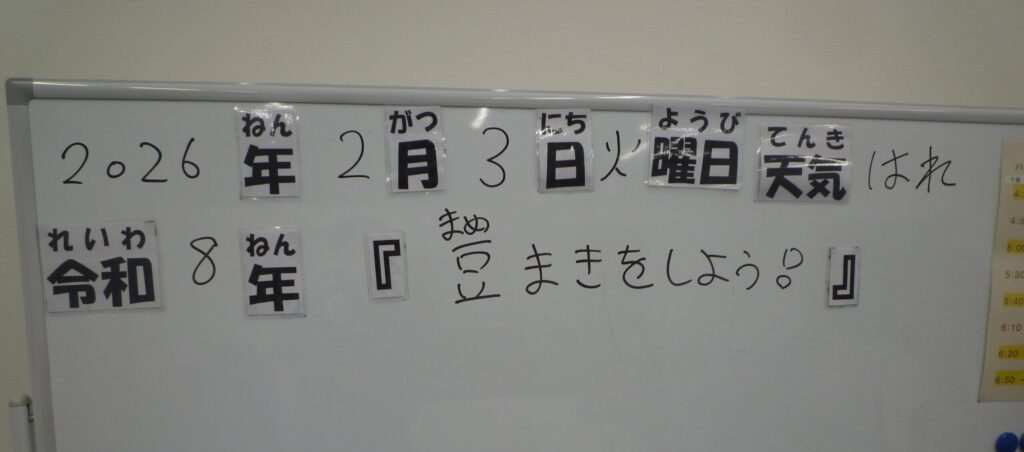 ねん がつ にち ようび てんき
2026 年 2 月 3 日 火 曜日 天気 はれ
れいわ ねん まめ
令和 8 年 『 豆まきをしよう! 』
5:00
5:30
5:40
6:10
6:20
6:50